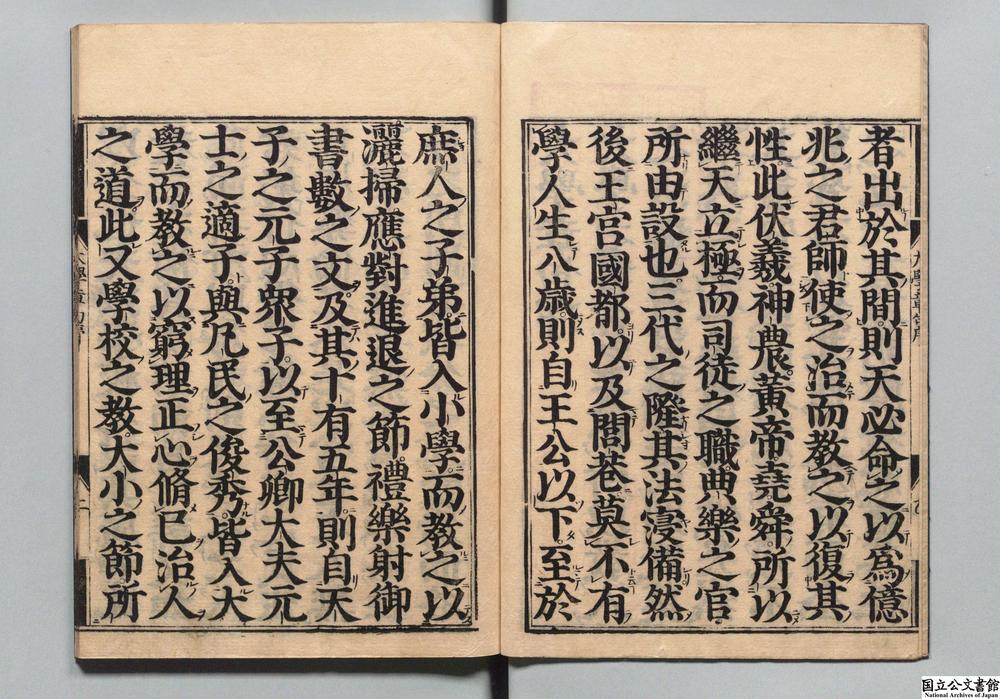 者出於其間則天必命之以爲億
兆之君師使之治而教之以復其
性此伏羲神農黃帝堯舜所以
繼天立極而司徒之職典樂之官
所由設也三代之隆其法寖備然
後王宮國都以及閭巷莫不有
學人生八歲則自王公以下至於
庶人之子弟皆入小學而教之以
灑掃應對進退之節禮樂射御
書數之文及其十有五年則自天
子之元子衆子以至公卿大夫元
士之適子與凡民之俊秀皆入大
學而教之以窮理正心脩已治人
之道此又學校之教大小之節所
国立公文書館
National Archives of Japan